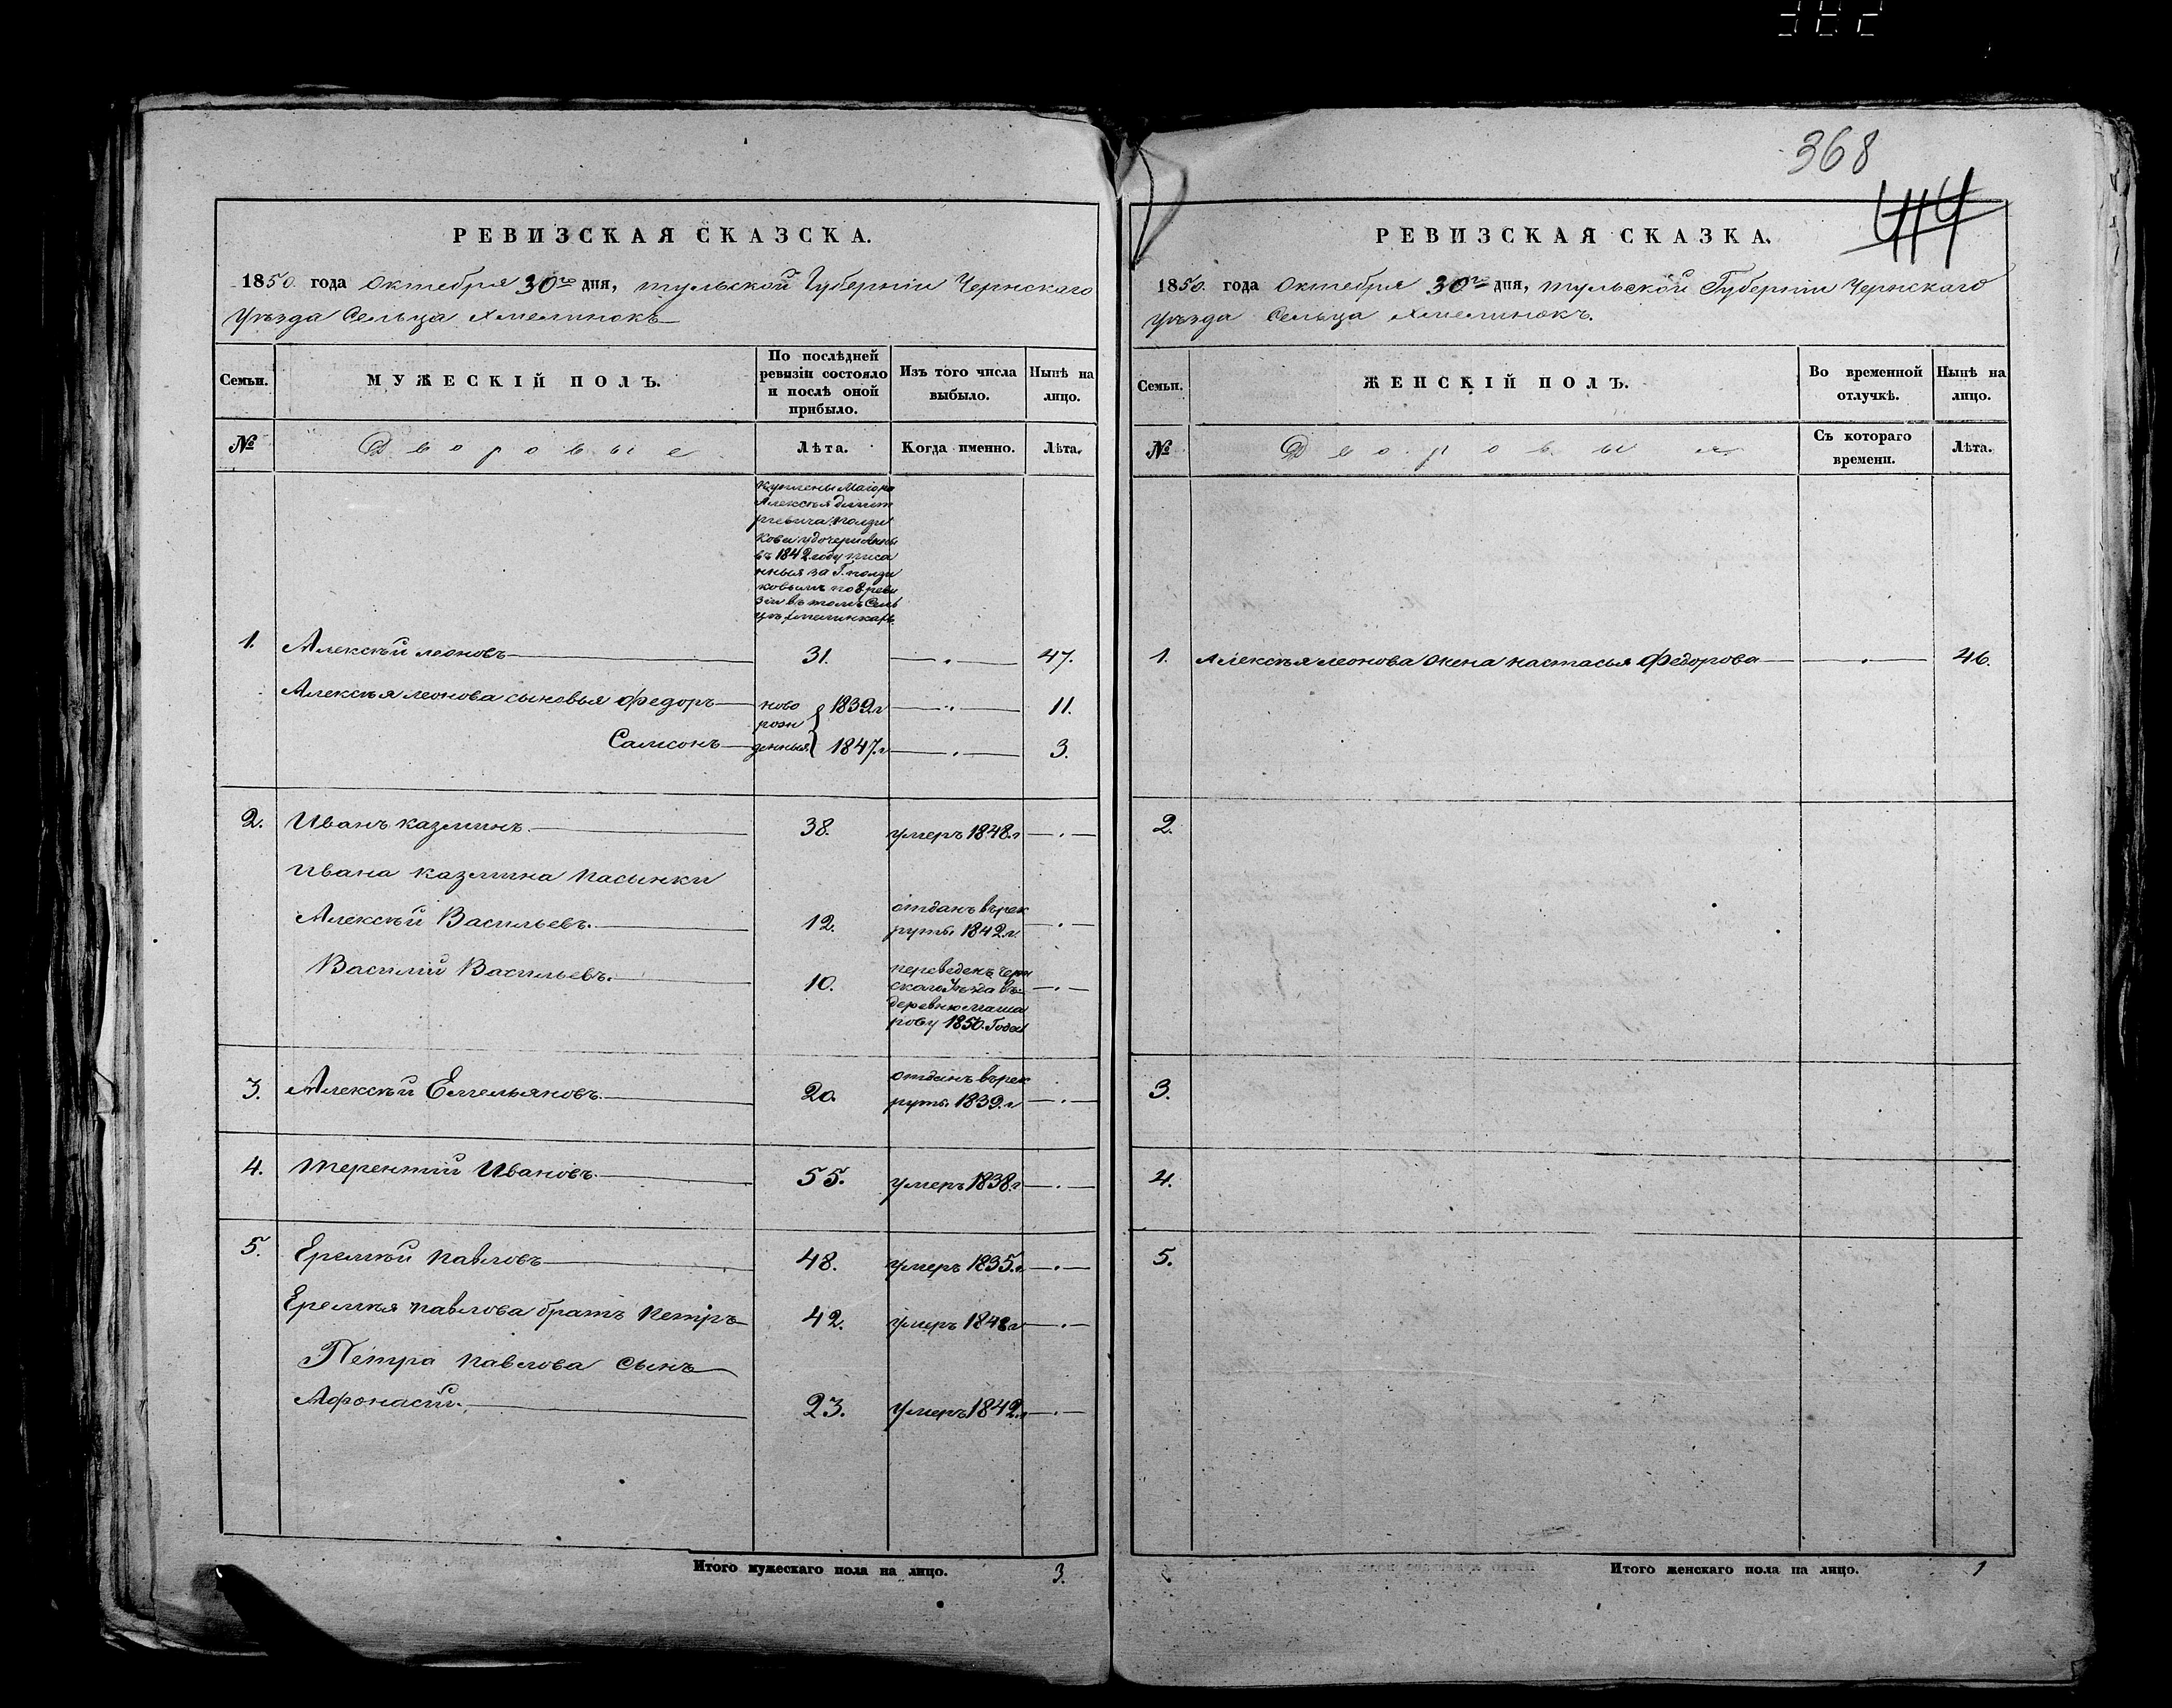 382
368
414
РЕВИЗСКАЯ СКАЗСКА.
1850. года Октября 30го дня, Тульской Губерніи Чернскаго
уѣзда Сельца Хмелинокъ
Семьи.
МУЖЕСКІЙ ПОЛЪ.
По послѣдней ревизіи состояло и послѣ оной прибыло.
Изъ того числа выбыло.
Нынѣ на лицо.
№
Дворовые
Лѣта.
Когда именно.
Лѣта.
куплены Маіора
Алексѣя Димит
ріевича
у дочери Анны
въ 1842 году писа
нныя за Г.
по 8 реви
зіи въ томъ Сель
цѣ Хмелинкахъ
1. Алексѣй леоновъ 31. 47.
Алексѣя леонова сыновья Федоръ ново 1839 г 11.
рож
Самсонъ денныя 1847. г 3.
2. Иванъ казминъ. 38. умеръ 1848. г
Ивана казмина пасынки
Алексѣй Васильевъ. 12. отданъ върек
руты. 1842. г.
Василій Васильевъ. 10. переведенъ Черн
скаго Уѣзда въ
деревню
1850. Года
3. Алексѣй Емельяновъ. 20. отданъ върек
руты. 1839. г
4. Терентій Ивановъ. 55. умеръ 1838. г
5. Еремѣй павловъ 48. умеръ 1835. г
Еремѣя павлова братъ петръ 42. умеръ 1848 г
Петра павлова сынъ
Афонасій. 23. умеръ 1842. г
Итого мужескаго пола на лицо. 3.
РЕВИЗСКАЯ СКАЗКА.
1850. года Октября 30го дня, Тульской Губерніи Чернскаго
уѣзда Сельца Хмелинокъ.
Семьи.
ЖЕНСКІЙ ПОЛЪ.
Во временной отлучкѣ.
Нынѣ на лицо.
№
Дворовыя
Съ котораго времени.
Лѣта.
1. Алексѣя леонова жена настасья Федорова 46.
2.
3.
4.
5.
Итого женскаго пола на лицо. 1